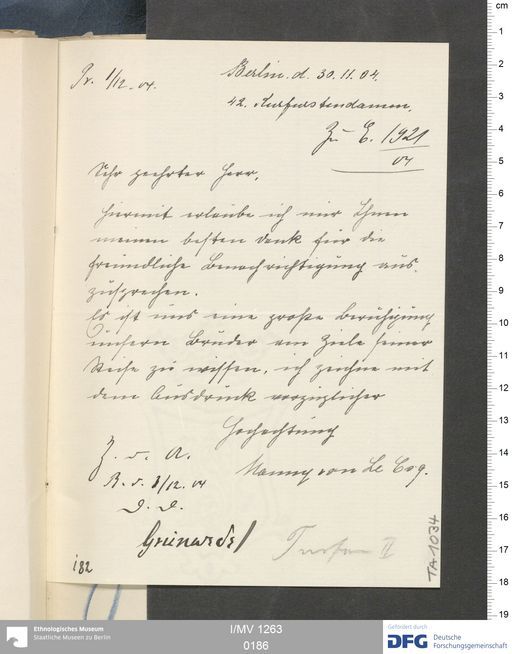 Pr. 1/12. 04.
Berlin. d. 30.11.04.
42. Kurfürstendamm.
Zu E. 1921
04
Sehr geehrter Herr,
Hiermit erlaube ich mir Ihnen
meinen besten Dank für die
freundliche Benachrichtigung aus-
zusprechen.
Es ist uns eine große Beruhigung
unsern Bruder am Ziele seiner
Reise zu wissen, ich zeichne mit
dem Ausdruck vorzüglicher
Hochachtung
Manny von Le Coq.
Z. d. A.
B. d. 2/12. 04
D. D.
Grünwedel
Turfan II
182
TA-1034
cm
1
2
3
4
5
6
7
8
9
10
11
12
13
14
15
16
17
18
19
Ethnologisches Museum
Staatliche Museen zu Berlin
I/MV 1263
0186
Gefördert durch
DFG Deutsche
Forschungsgemeinschaft